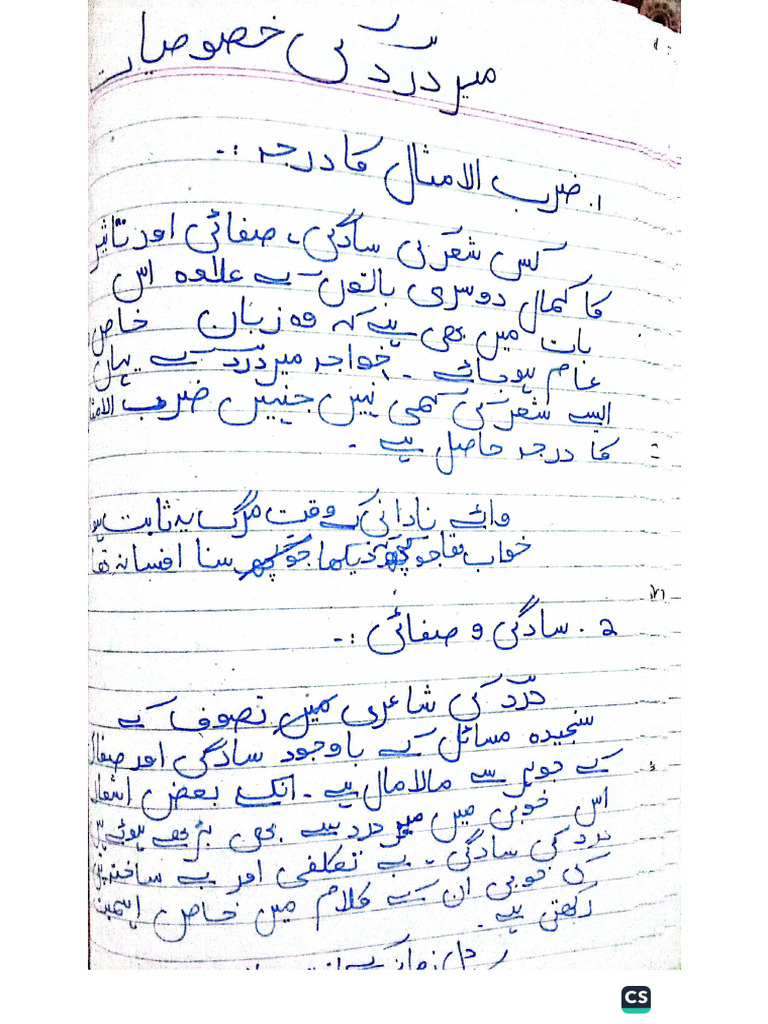 میر درد کی خصوصیات
1. ضرب الامثال کا درجہ :۔
کس شعر کی سادگی، صفائی اور تاثیر
کا کمال دوسری باتوں کے علاوہ اس
بات میں بھی ہے کہ وہ زبان خاص
عام ہو جائے ۔ خواجہ میر درد کے یہاں
ایسے شعر کی کمی نہیں جنہیں ضرب الامثا
کا درجہ حاصل ہے ۔
وائے نادانی کے وقت مرگ یہ ثابت
خواب تھا جو کچھ دیکھا جو کچھ سنا افسانہ تھا
2. سادگی و صفائی :۔
درد کی شاعری میں تصوف کے
سنجیدہ مسائل کے باوجود سادگی اور صفائی
کے جوہر سے مالامال ہے ۔ انکے بعض اشعار
اس خوبی میں میر درد سے بھی بڑھے ہوئے
درد کی سادگی ۔ بے تکلفی اور بے ساختہ
کی خوبی ان کے کلام میں خاص اہمیت
رکھتی ہے ۔
CS